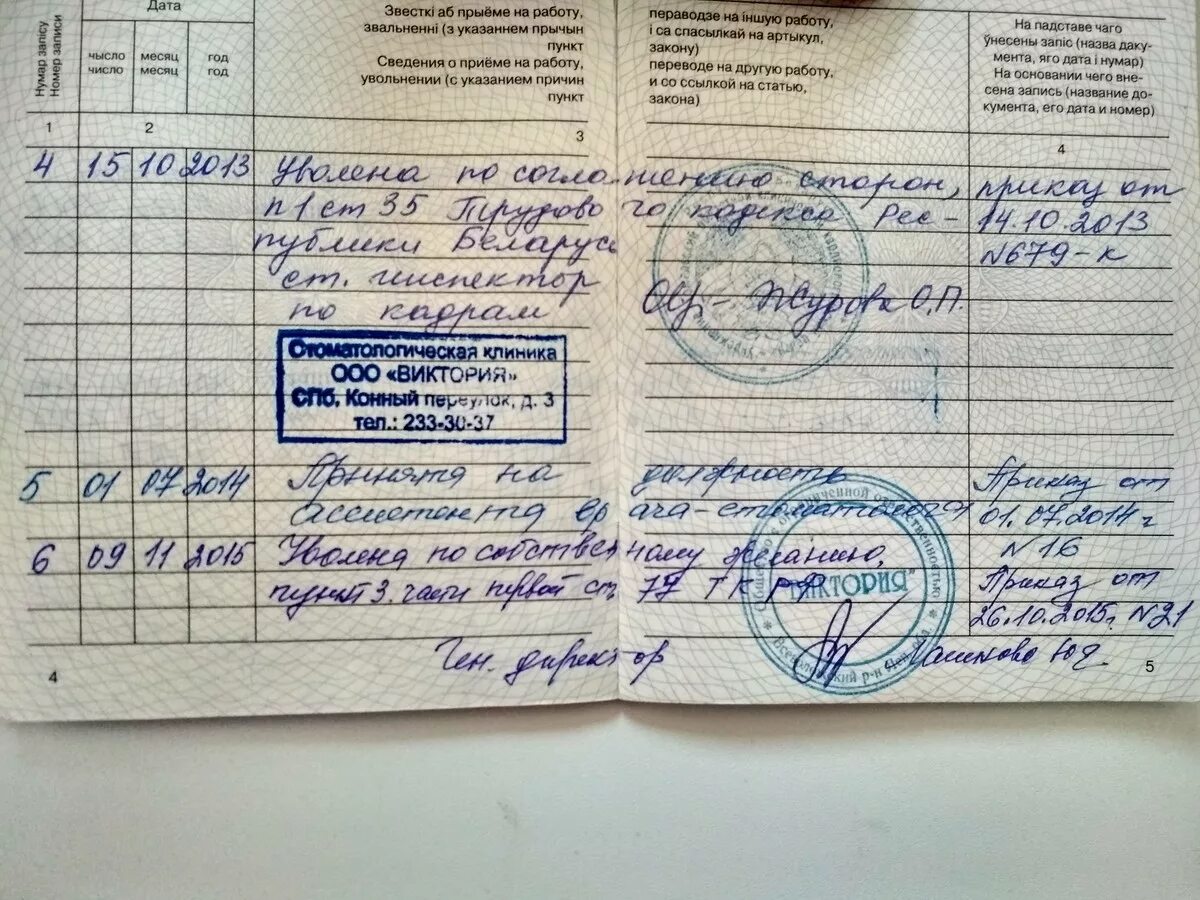 Нумар запісу
Номер записи
Дата
чысло
число
месяц
месяц
год
год
Звесткі аб прыёме на работу,
звальненні (з указаннем прычын
пункт
Сведения о приёме на работу,
увольнении (с указанием причин
пункт
пераводзе на іншую работу,
і са спасылкай на артыкул,
закону)
переводе на другую работу,
и со ссылкой на статью,
закона)
На падставе чаго
ўнесены запіс (назва даку-
мента, яго дата і нумар)
На основании чего вне-
сена запись (название до-
кумента, его дата и номер)
1 2 3 4
4 15 10 2013 Уволена по соглашению сторон, приказ от
п 1 ст 35 Трудового кодекса Рес- 14.10.2013
публики Беларусь №679-к
ст. инспектор
по кадрам Журова О.П.
Стоматологическая клиника
ООО «ВИКТОРИЯ»
СПб, Конный переулок, д. 3
тел.: 233-30-37
5 01 07 2014 Принята на должность Приказ от
ассистента врача-стоматолога 01.07.2014 г
№16
6 09 11 2015 Уволена по собственному желанию,
пункт 3. части первой ст 77 ТК РФ Приказ от
26.10.2015г. №21
Ген. директор
Общество с ограниченной ответственностью
"ВИКТОРИЯ"
4
5